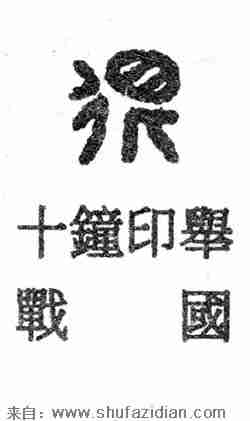 十鐘印舉
戰國
来自：www.shufazidian.com